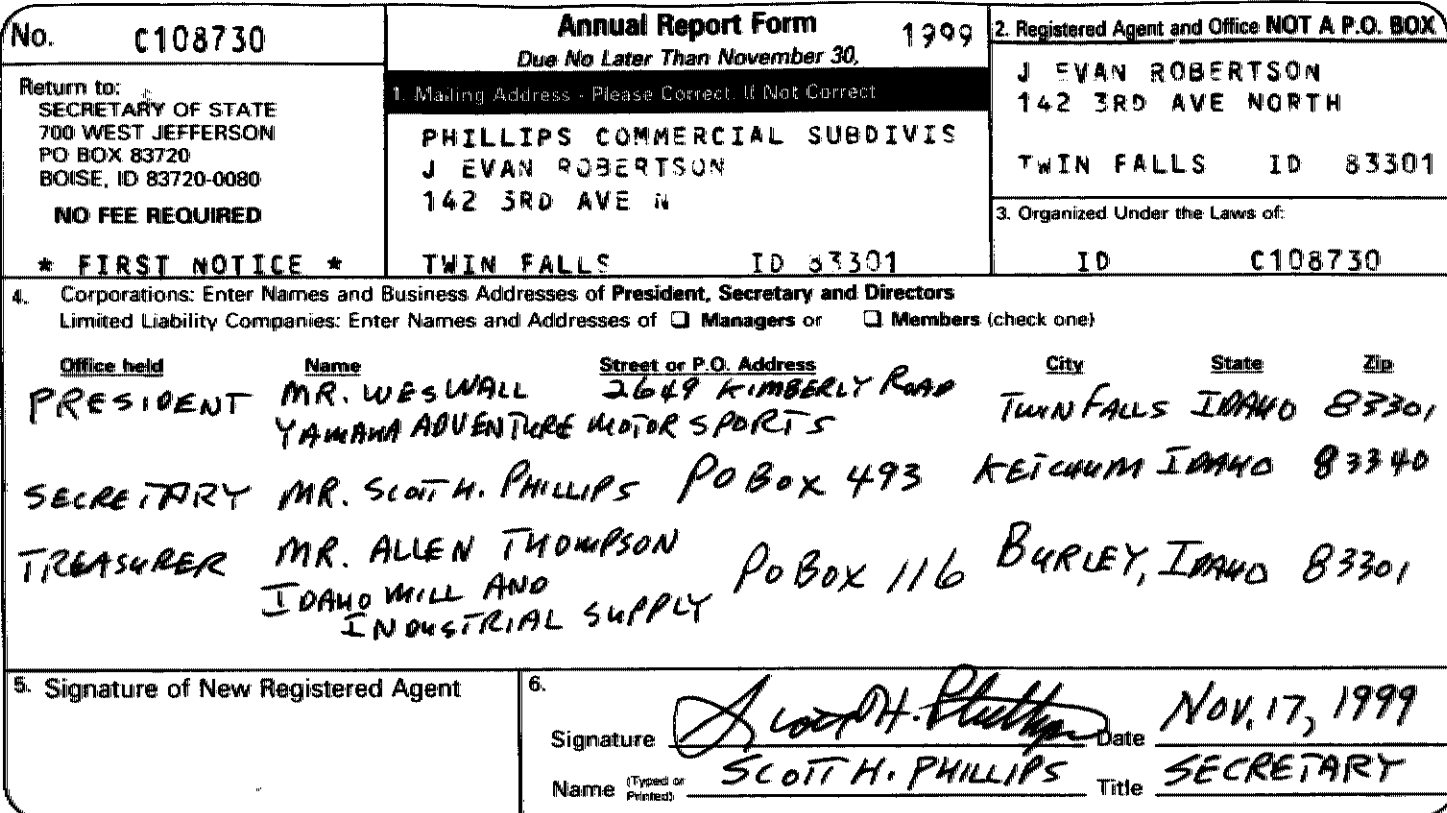 No. C108730
Return to:
SECRETARY OF STATE
700 WEST JEFFERSON
PO BOX 83720
BOISE, ID 83720-0080
NO FEE REQUIRED
* FIRST NOTICE *
Annual Report Form 1999
Due No Later Than November 30,
1. Mailing Address - Please Correct, If Not Correct
PHILLIPS COMMERCIAL SUBDIVIS
J EVAN ROBERTSON
142 3RD AVE N
TWIN FALLS ID 83301
2. Registered Agent and Office NOT A P.O. BOX
J EVAN ROBERTSON
142 3RD AVE NORTH
TWIN FALLS ID 83301
3. Organized Under the Laws of:
ID C108730
4. Corporations: Enter Names and Business Addresses of President, Secretary and Directors
Limited Liability Companies: Enter Names and Addresses of ❑ Managers or ❑ Members (check one)
Office held Name Street or P.O. Address City State Zip
PRESIDENT MR. WES WALL 2649 KIMBERLY ROAD TWIN FALLS IDAHO 83301
YAMAHA ADVENTURE MOTOR SPORTS
SECRETARY MR. SCOTT H. PHILLIPS PO BOX 493 KETCHUM IDAHO 83340
TREASURER MR. ALLEN THOMPSON PO BOX 116 BURLEY, IDAHO 83301
IDAHO MILL AND
INDUSTRIAL SUPPLY
5. Signature of New Registered Agent
6.
Signature Scott H. Phillips Date Nov, 17, 1999
Name (Typed or Printed) SCOTT H. PHILLIPS Title SECRETARY